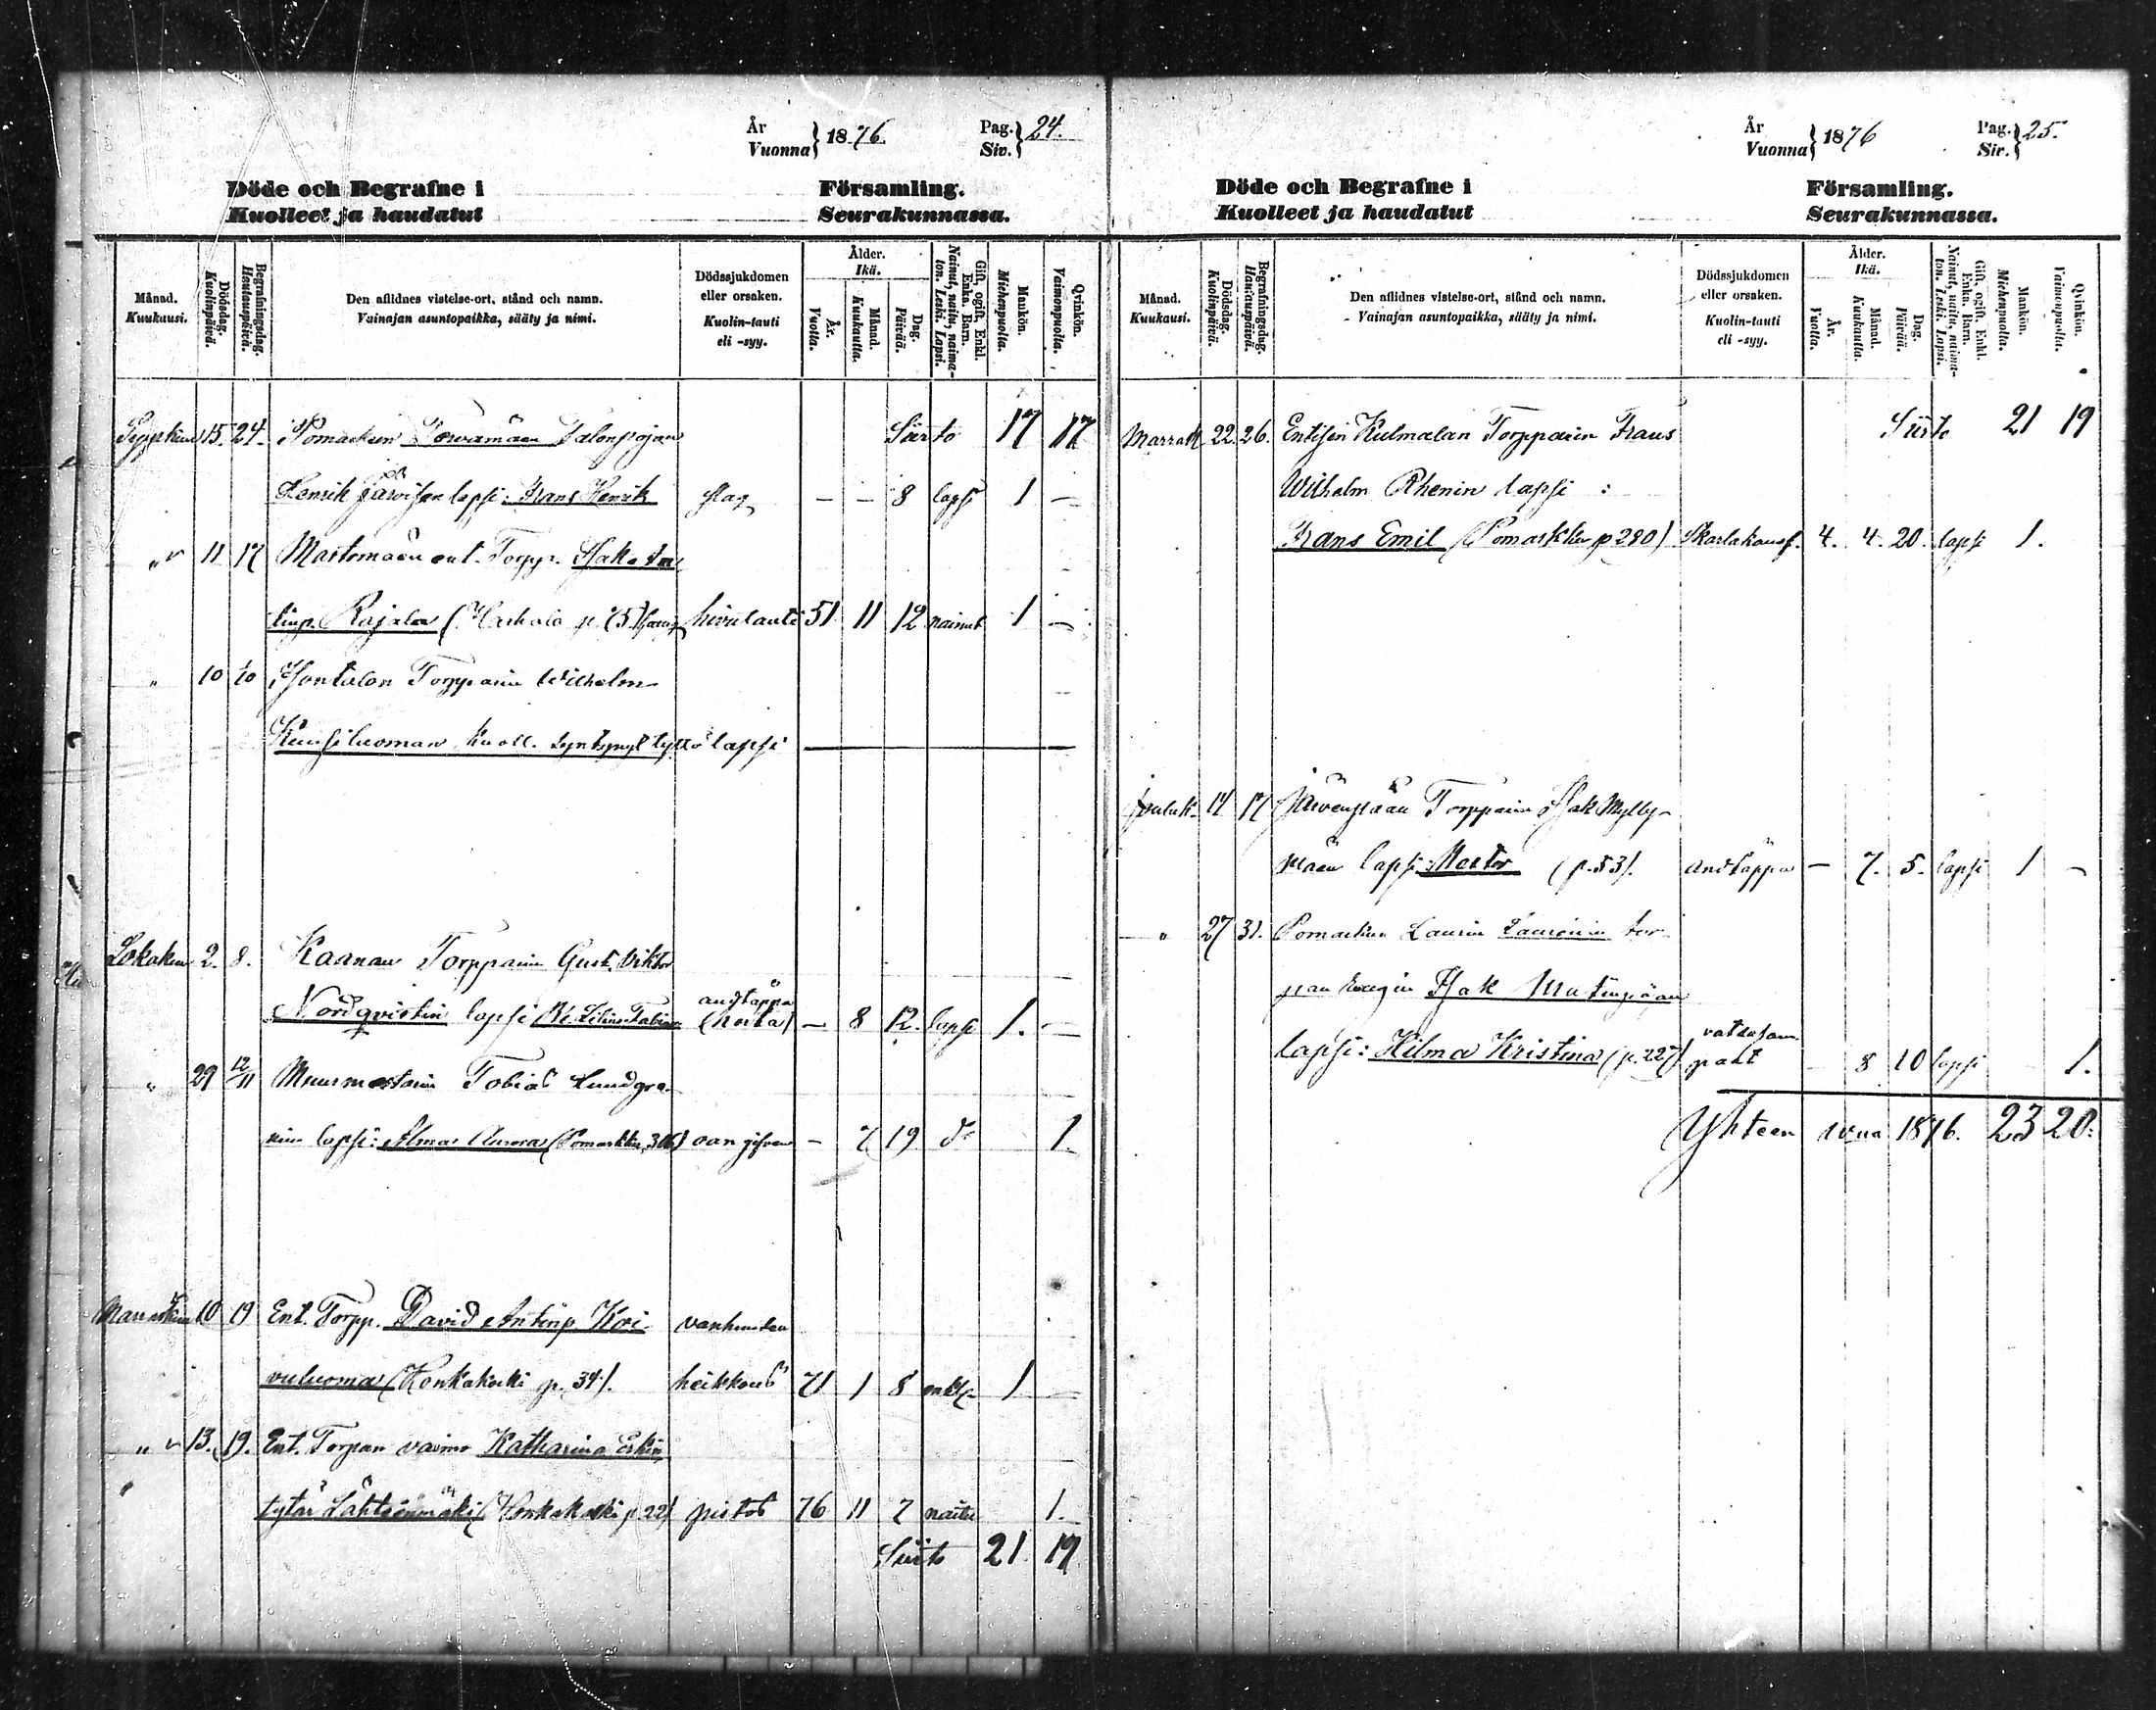 År
Vuonna } 1876.
Pag.
Siv. } 24.
Döde och Begrafne i Församling.
Kuolleet ja haudatut Seurakunnassa.
Månad. Kuukausi.
Dödsdag. Kuolinpäivä.
Begrafningsdag. Hautauspäivä.
Den aflidnes vistelse-ort, stånd och namn.
Vainajan asuntopaikka, sääty ja nimi.
Dödssjukdomen eller orsaken.
Kuolin-tauti eli -syy.
Ålder. Ikä.
År. Vuotta.
Månad. Kuukautta.
Dag. Päivää.
Gift, ogift. Enkl. Enka. Barn.
Nainut, naitu, naimaton. Leski. Lapsi.
Mankön. Miehenpuolta.
Qvinkön. Vaimonpuolta.
15. 24. Pomarkun Talonpojan Siirto 17 17
Henrik Järvisen lapsi: Frans Henrik slag — — 8 lapsi 1 —
" 11 17 Mastomäen ent. Torpp.
Rajala hivutauti 51 11 12 nainut 1 —
" 10 Torpparin Wilhelm
kuoll. tyttö lapsi
Lokakuu 2. 8. Kaanan Torpparin Gust. Viktor
andtäppa
Nordqvistin lapsi — 8 12. lapsi 1. —
" 29 12/11 Muurmestarin Tobias Lundgre-
nin lapsi: Alma Aurora (Pomarkku, 306) — 7 19 do 1.
10 19 Ent. Torpp. David Antinp. Koi- vanhuuden
vuluoma (Honkakoski p. 34). heikkous 71 1 8 enkl. 1 —
" 13. 19. Ent. Torpan vaimo Katharina Eskin
tytär Lähteenmäki (Honkakoski p. 22) pistos 76 11 7 naitu 1.
Siirto 21. 19
År
Vuonna } 1876
Pag.
Sir. } 25.
Döde och Begrafne i Församling.
Kuolleet ja haudatut Seurakunnassa.
Månad. Kuukausi.
Dödsdag. Kuolinpäivä.
Begrafningsdag. Hautauspäivä.
Den aflidnes vistelse-ort, stånd och namn.
Vainajan asuntopaikka, sääty ja nimi.
Dödssjukdomen eller orsaken.
Kuolin-tauti eli -syy.
Ålder. Ikä.
År. Vuotta.
Månad. Kuukautta.
Dag. Päivää.
Gift, ogift. Enkl. Enka. Barn.
Nainut, naitu, naimaton. Leski. Lapsi.
Mankön. Miehenpuolta.
Qvinkön. Vaimonpuolta.
Marrask 22. 26. Entisen Kulmalan Torpparin Frans Siirto 21 19
Wilhelm Rhenin lapsi :
Frans Emil (Pomarkku p 280) 4. 4. 20. lapsi 1.
Jouluk. 14 17 Järvenpään Torpparin Isak Mylly-
mäen lapsi: Nestor (p. 53). andtäppa — 7. 5. lapsi 1 —
" 27 31. Pomarkun Laurin tor-
pan Isak
lapsi: Hilma Kristina (p. 227) 8 10 lapsi 1.
Yhteen vuna 1876. 23 20.